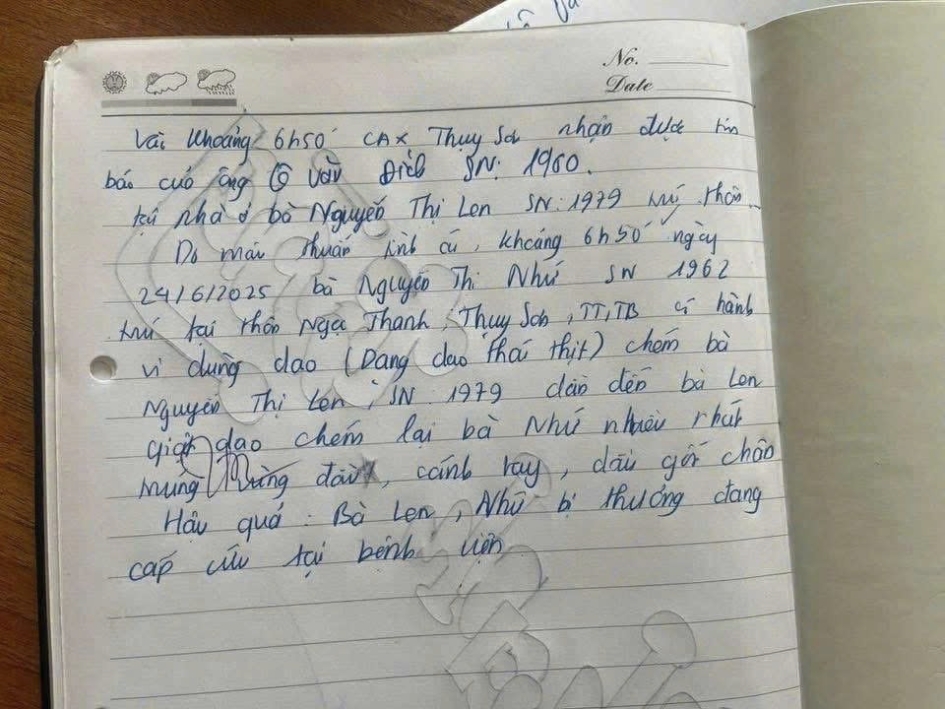 No.
Date
Vào khoảng 6h50 CAX Thụy Sơn nhận được tin
báo của ông Vũ Văn Đích SN: 1960.
tại nhà ở bà Nguyễn Thị Len SN: 1979 trú thôn
Do mâu thuẫn tình cả, khoảng 6h50 ngày
24/6/2025 bà Nguyễn Thị Nhứ SN 1962
trú tại thôn Ngạc Thanh, Thụy Sơn, TT, TB có hành
vi dùng dao (Dạng dao thái thịt) chém bà
Nguyễn Thị Len, SN 1979 dẫn đến bà Len
giật dao chém lại bà Nhứ nhiều nhát
đầu, cánh tay, đầu gối chân
Hậu quả: Bà Len, Nhứ bị thương đang
cấp cứu tại bệnh viện